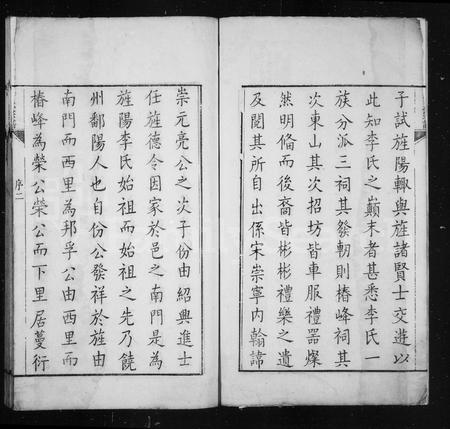 予試旌陽輙與旌諸賢士交遊以
此知李氏之巔末者甚悉李氏一
族分派三祠其發軔則椿峰祠其
次東山其次招坊皆車服禮器燦
然明備而後裔皆彬彬禮樂之遺
及閱其所自出係宋崇寧内翰諱
崇元亮公之次子份由紹興進士
任旌德令因家於邑之南門是為
旌陽李氏始祖而始祖之先乃饒
州鄱陽人也自份公發祥於旌由
南門而西里為邦孚公由西里而
椿峰為榮公榮公而下里居蔓衍
序二